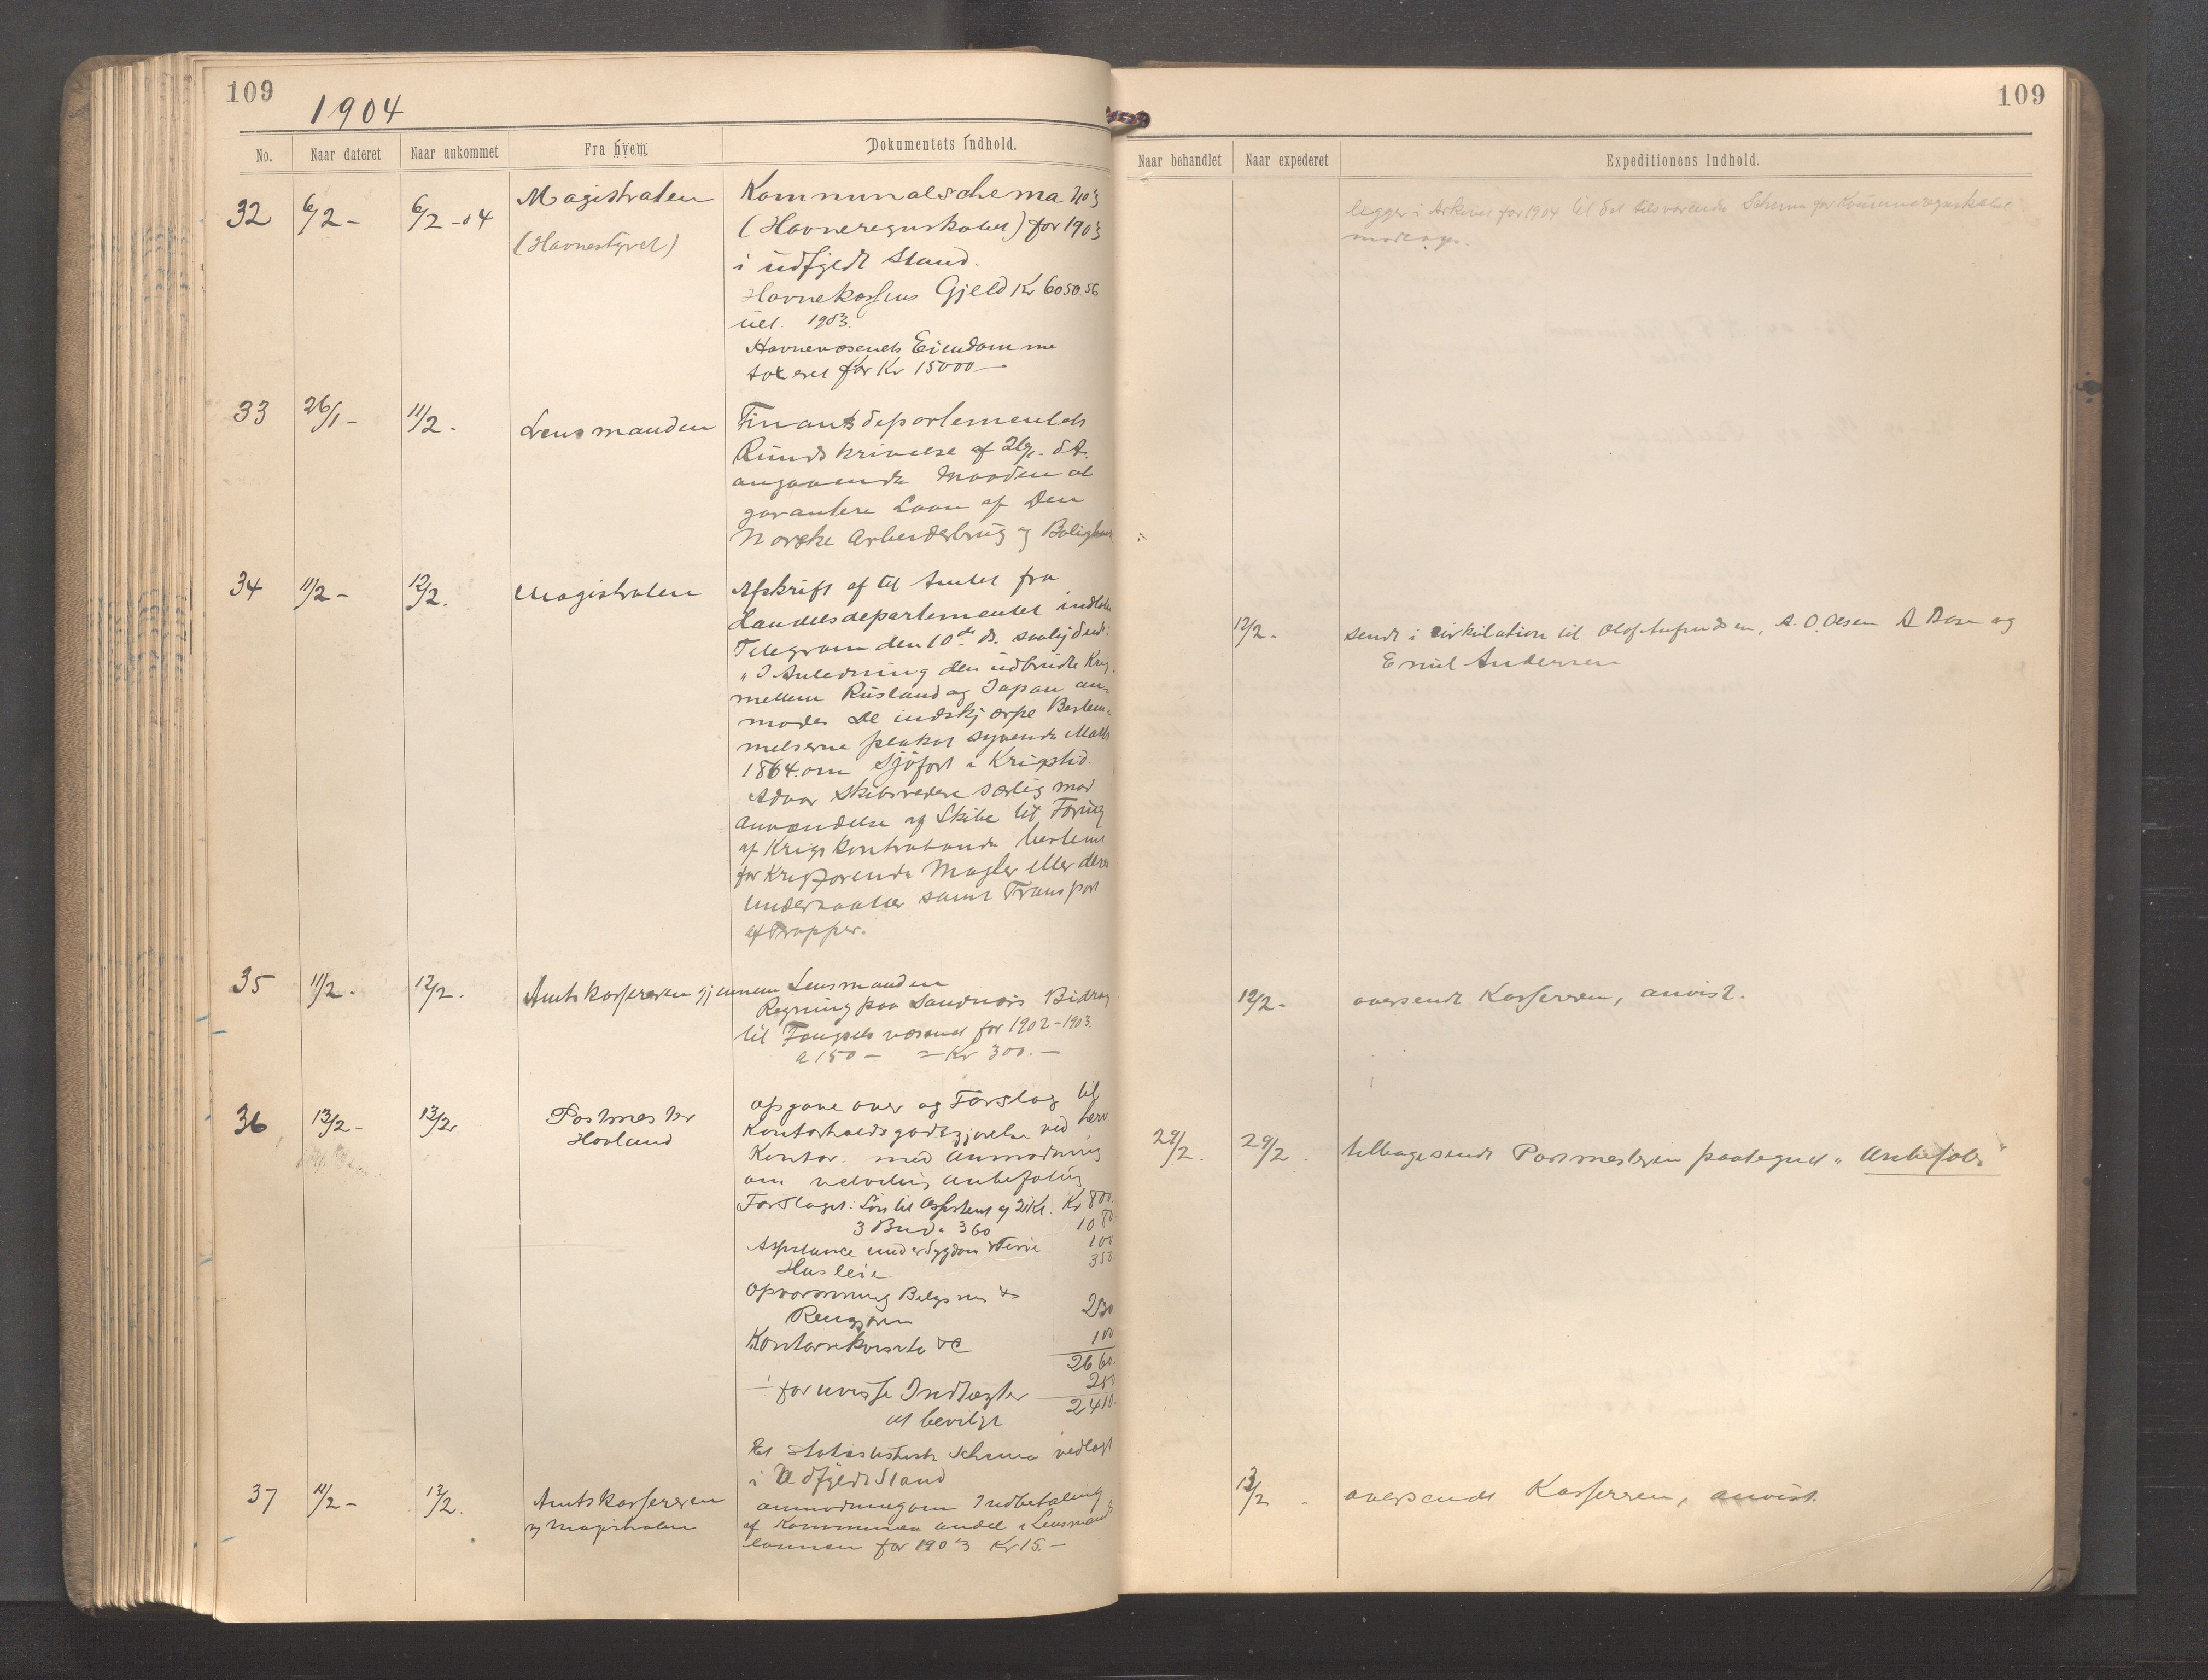 109
1904
No. Naar dateret Naar ankommet Fra hvem Dokumentets Indhold.
32 6/2 - 6/2 - 04 Magistraten Kommunalschema No 3
(Havnestyret) (Havneregnskabet) for 1903
i udfyldt Stand.
Havnekassens Gjeld Kr 6050.56
ult. 1903.
Havnevæsenets Eiendomme
taxeret for Kr 15000 —
33 26/1 - 11/2 - Lensmanden Finantsdepartementets
Rundskrivelse af 26/1 - d.A.
angaaende Maaden at
garantere Laan af Den
Norske Arbeiderbrug og Boligbank
34 11/2 - 12/2. Magistraten Afskrift af til Amtet fra
Handelsdepartementet indløbet
Telegram den 10de ds. saalydende:
"I Anledning den udbrudte Krig
mellem Rusland og Japan an-
modes De indskjærpe Bestem-
melserne plakat syvende Marts
1864 om Sjøfart i Krigstid.
Advar Skibsredere særlig mod
Anvændelse af Skibe til Føring
af Krigskontrabande bestemt
for Krigførende Magter eller deres
Undersaatter samt Transport
af Tropper.
35 11/2 - 12/2. Amtskassereren gjennem Lensmanden
Regning paa Sandnæs Bidrag
til Fængselsvæsenet for 1902-1903.
a 150 — = Kr 300. —
36 13/2 - 13/2. Postmester Opgave over og Forslag til
Hovland Kontorholdsgodtgjørelse ved herv
Kontor. med Anmodning
om velvillig Anbefaling
Forslaget: Løn til Assistent af 2 Kl. Kr 800.
3 Bud a 360 1080
Assistance under Sygdom & Ferie 100
Husleie 350
Opvarmning Belysn &
Rengjøren 230
Kontorrekvisita &c 100
2660
÷ for uvisse Indtægter 250
at bevilge 2410.
Et statistisk Schema vedlagt
i Udfyldt Stand
37 11/2 - 13/2. Amtskassereren Anmodning om Indbetaling
gj Magistraten af Kommunens andel i Lensmands
lønnen for 1903 Kr 15. —
109
Naar behandlet Naar expederet Expeditionens Indhold.
legges i Arkivet for 1904 til det tilsvarende Schema for Kommuneregnskabet
modtages.
12/2 - sendt i Cirkulation til Olaf A. O. Olsen og
Emil Andersen
12/2 - oversendt Kassereren, anvist.
29/2. 29/2. tilbagesendt Postmesteren paategnet "Anbefales"
13/2 - oversendt Kassereren, anvist.